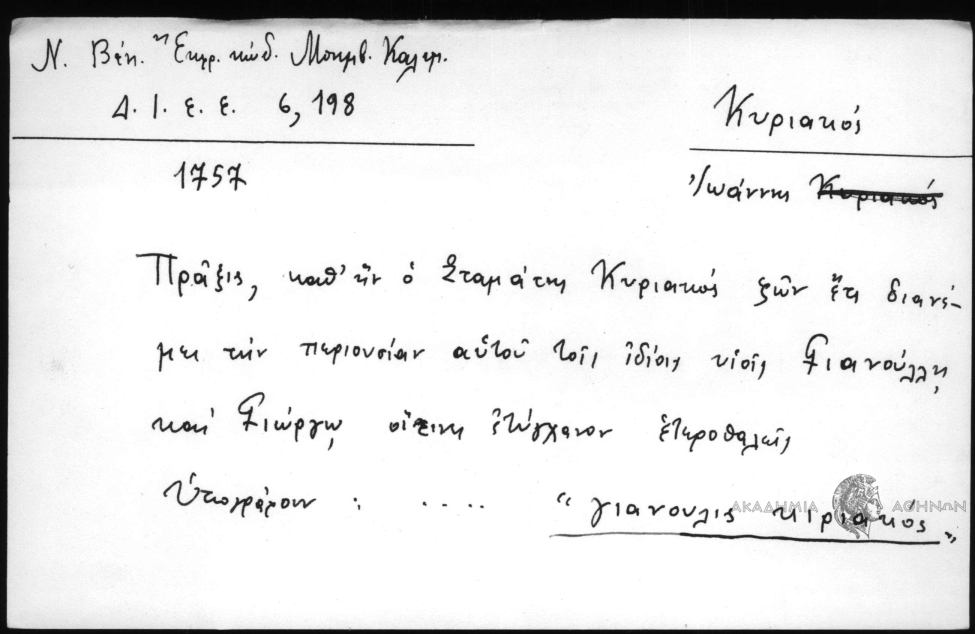 Ν. Βέη. "Εκφρ. κώδ. Μονεμβ. Καλαμ.
Δ. Ι. Ε. Ε. 6, 198
Κυριακός
1757
Ἰωάννης Κυριακός
Πρᾶξις, καθ' ἣν ὁ Σταμάτης Κυριακός ζῶν ἔτι διανέ-
μει τὴν περιουσίαν αὑτοῦ τοῖς ἰδίοις υἱοῖς Γιανούλλῃ
καὶ Γιώργῳ οἵτινες ἐτύγχανον ἑτεροθαλεῖς
Ὑπογράφουν : .... "γιανουλις κιριακός"
ΑΚΑΔΗΜΙΑ ΑΘΗΝΩΝ